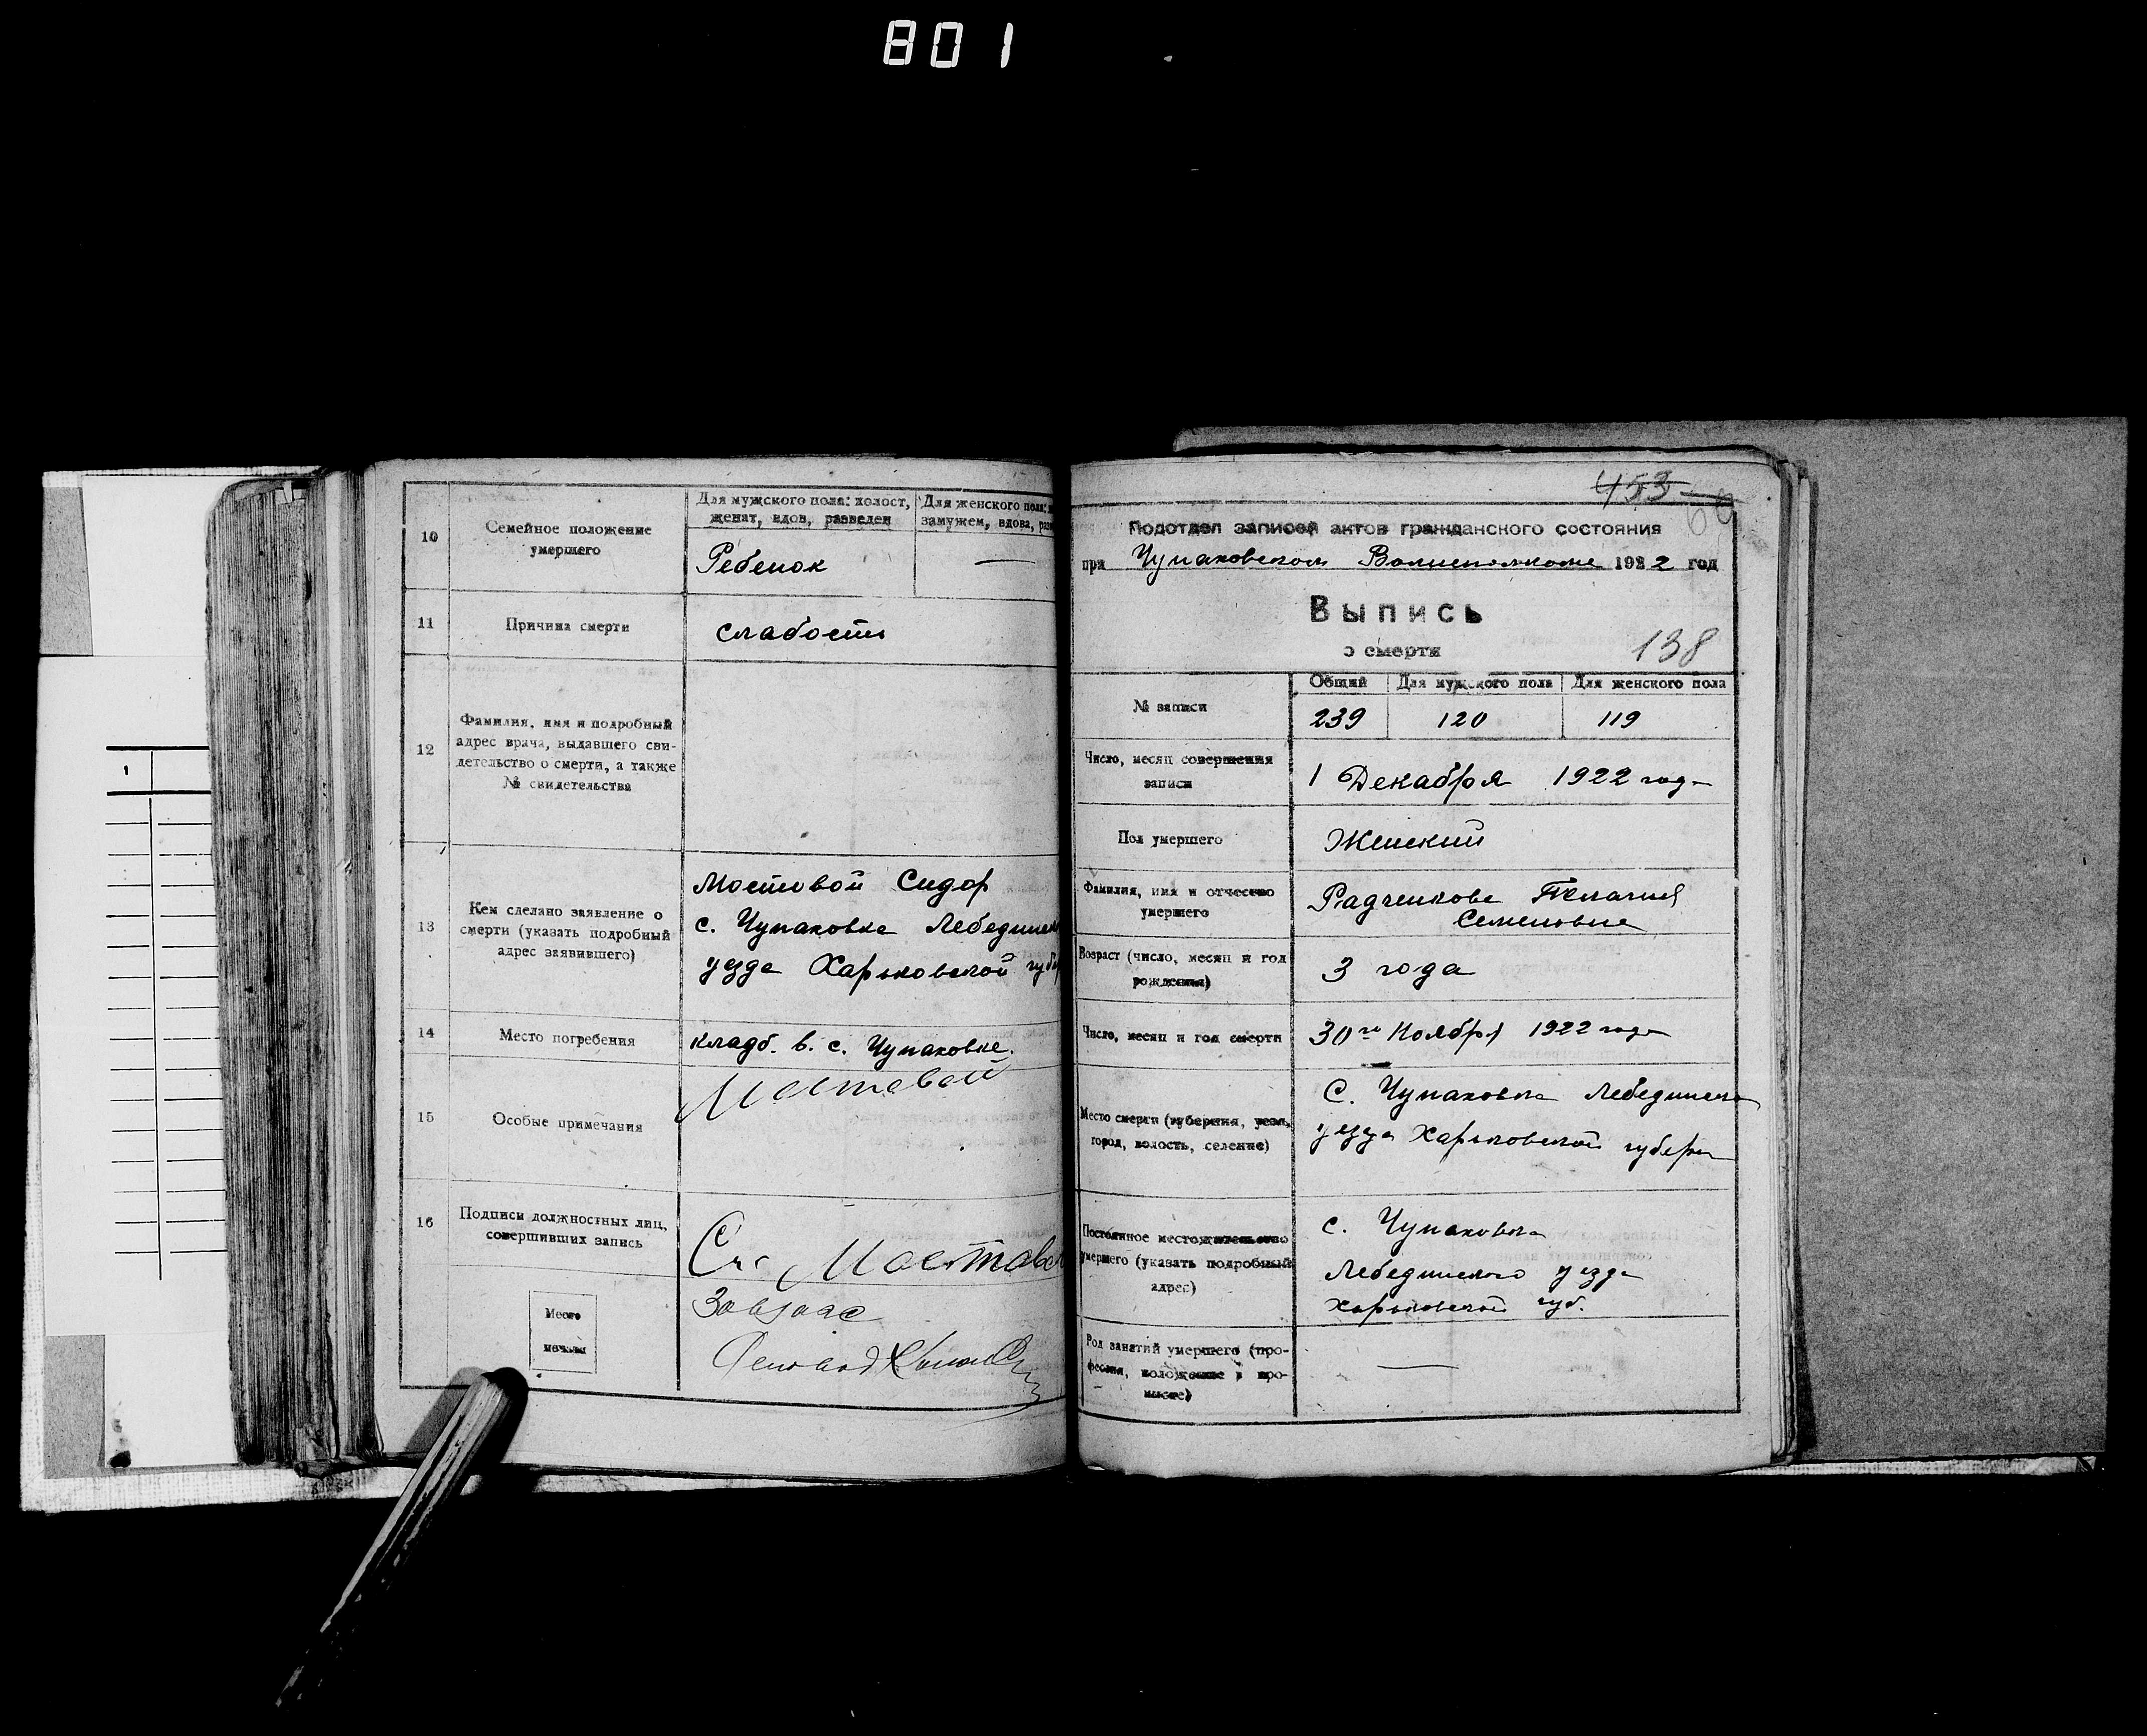 801
10
Семейное положение
умершего
Для мужского пола: холост,
женат, вдов, разведен
Для женского пола:
замужем, вдова,
Ребенок
—
11
Причина смерти
слабость
12
Фамилия, имя и подробный
адрес врача, выдавшего сви-
детельство о смерти, а также
№ свидетельства
13
Кем сделано заявление о
смерти (указать подробный
адрес заявившего)
Мостовой Сидор
с. Чупаховка Лебединск
уезда Харьковской губ
14
Место погребения
кладб. в. с. Чупаховке.
15
Особые примечания
Мостовой
16
Подписи должностных лиц,
совершивших запись
Мостовой
Завзагс
Место
печати
453
Подотдел записей актов гражданского состояния
при Чупаховском Волисполкоме 1922 год
Выпись
о смерти
138
№ записи
Общий
Для мужского пола
Для женского пола
239
120
119
Число, месяц совершения
записи
1 Декабря 1922 года
Пол умершего
Женский
Фамилия, имя и отчество
умершего
Радченкова Пелагия
Семеновна
Возраст (число, месяц и год
рождения)
3 года
Число, месяц и год смерти
30го Ноября 1922 года
Место смерти (губерния, уезд,
город, волость, селение)
С. Чупаховка Лебединско
уезда Харьковской губерн
Постоянное местожительство
умершего (указать подробный
адрес)
с. Чупаховка
Лебединского уезда
Харьковской губ.
Род занятий умершего (про-
фессия, положение в про-
мысле)
—